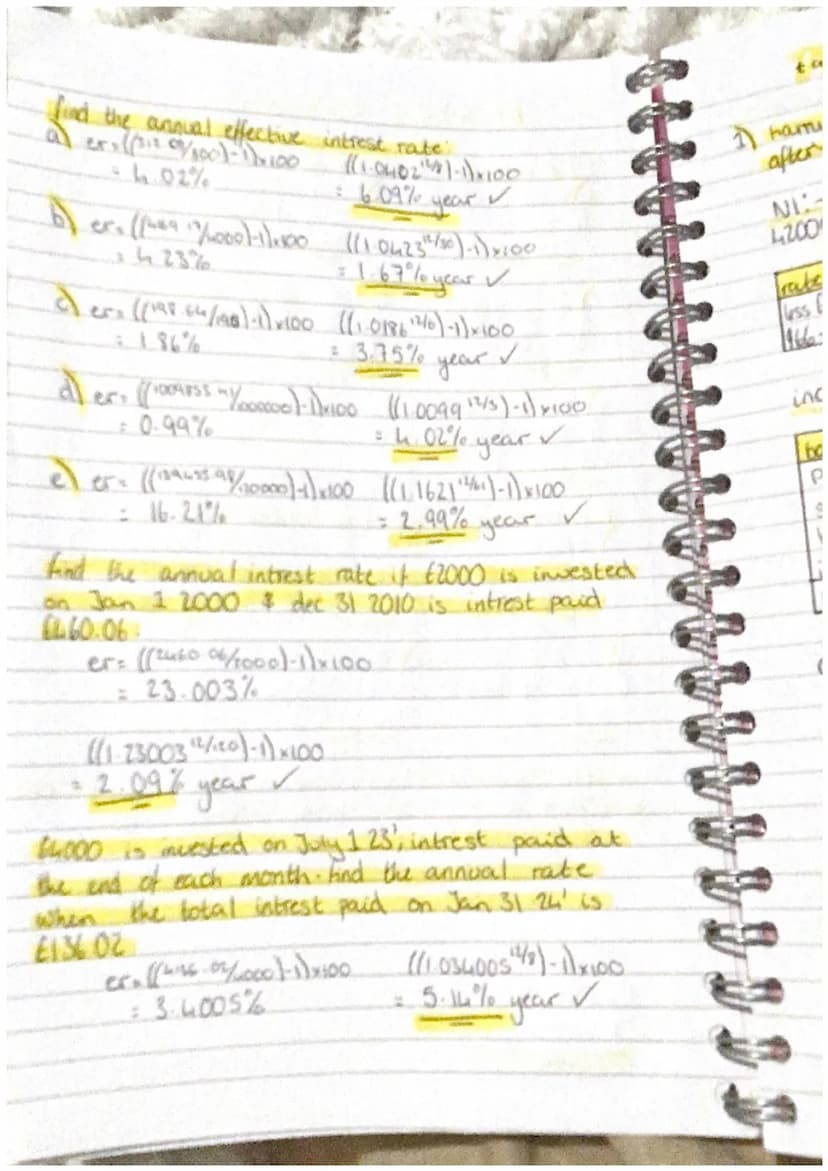 find the annual effective intrest rate:
a) er = ((312.09/300)-1)×100 ((1.0402^12/8)-1)×100
= 4.02% = 6.09% year ✓
b) er = (( /4000)-1)×100 ((1.0423^12/30)-1)×100
= 4.23% = 1.67% year ✓
c) er = ((198.64/195)-1)×100 ((1.0186^12/6)-1)×100
= 1.86% = 3.75% year ✓
d) er = (( )-1)×100 ((1.0099^12/3)-1)×100
= 0.99% = 4.02% year ✓
e) er = (( )-1)×100 ((1.1621^12/61)-1)×100
= 16.21% = 2.99% year ✓
find the annual intrest rate if £2000 is invested
on Jan 1 2000 & dec 31 2010 is intrest paid
£460.06.
er = ((2460.06/2000)-1)×100
= 23.003%
((1.23003^12/120)-1)×100
= 2.09% year ✓
£4000 is invested on July 1 23', intrest paid at
the end of each month. find the annual rate
when the total intrest paid on Jan 31 24' is
£136.02
er = ((4136.02/4000)-1)×100 ((1.034005^12/8)-1)×100
= 3.4005% = 5.14% year ✓
1)
after
NI:-
4200
rate
less
166-
inc